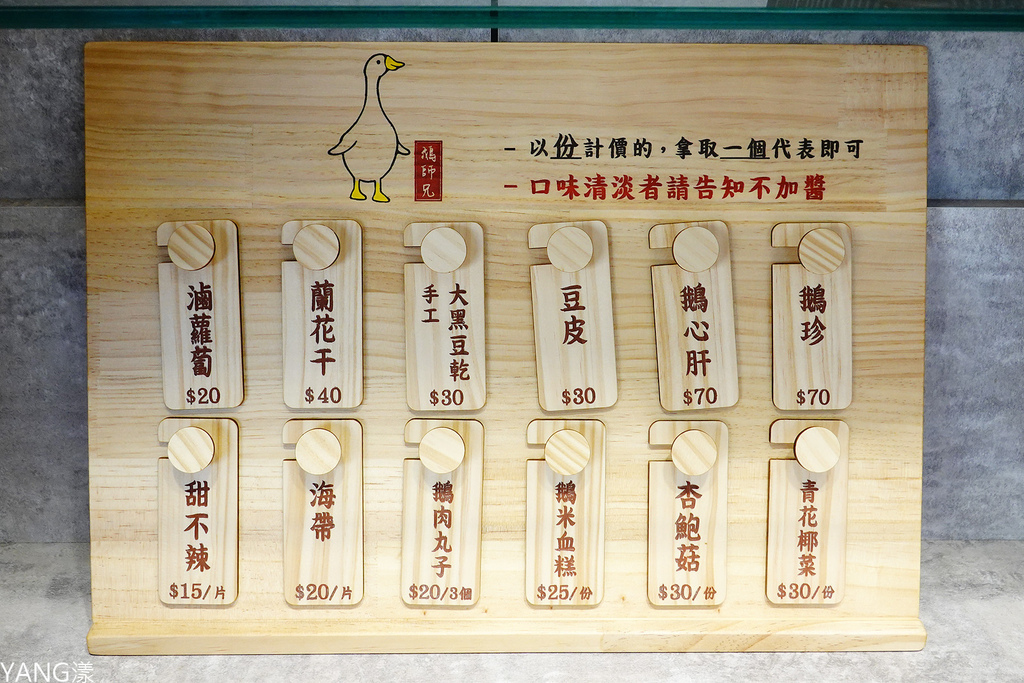 - 以份計價的，拿取一個代表即可
- 口味清淡者請告知不加醬
鵝師兄
滷蘿蔔
$20
蘭花干
$40
手工
大黑豆乾
$30
豆皮
$30
鵝心肝
$70
鵝珍
$70
甜不辣
$15/片
海帶
$20/片
鵝肉丸子
$20/3個
鵝米血糕
$25/份
杏鮑菇
$30/份
青花椰菜
$30/份
YANG漾